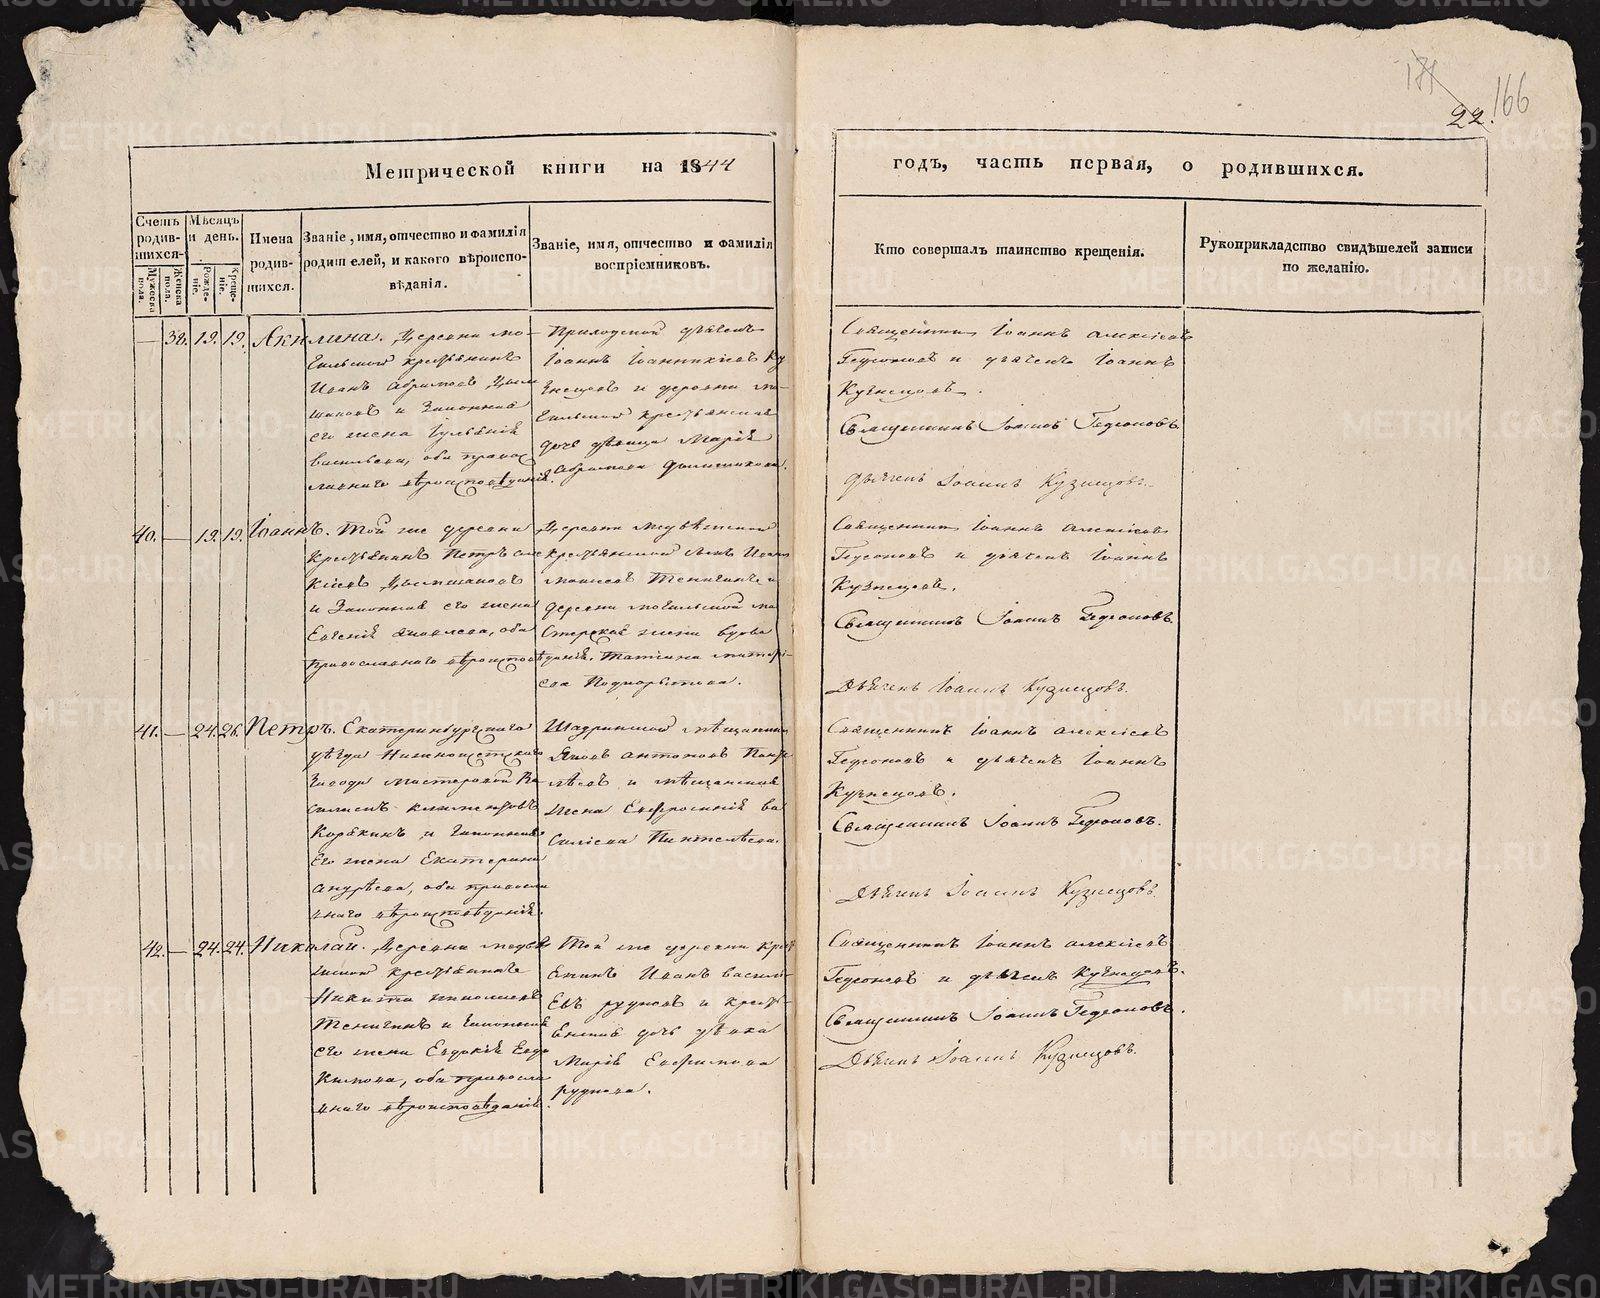 171
22. 166
Метрической книги на 1844
годъ, часть первая, о родившихся.
Счетъ родив-шихся.
Мужеска пола.
Женска пола.
Мѣсяцъ и день.
Рожде-ніе.
Креще-ніе.
Имена родив-шихся.
Званіе, имя, отчество и фамилія
родителей, и какого вѣроиспо-
вѣданія.
Званіе, имя, отчество и фамилія
воспріемниковъ.
Кто совершалъ таинство крещенія.
Рукоприкладство свидѣтелей записи
по желанію.
— 38. 19. 19. Акилина. Деревни мо-
гильской крестьянинъ
Иванъ Абрамовъ
и законная
его жена Іуліанія
Васильева, оба правос
лавнаго вѣроисповѣданія.
Приходской дьячекъ
Іоаннъ Іоанникіевъ Ку
знецовъ и деревни мо-
гильской крестьянская
дочь дѣвица Марія
Абрамова
Священникъ Іоаннъ Алексіевъ
Гедеоновъ и дьячекъ Іоаннъ
Кузнецовъ.
Священникъ Іоаннъ Гедеоновъ.
Дьячекъ Іоаннъ Кузнецовъ.
40. — 19. 19. Іоаннъ. Той же деревни
крестьянинъ Петръ Але
кіевъ
и законная его жена
Евгенія Яковлева, оба
православнаго вѣроисповѣданія.
Деревни Медвѣжской
крестьянской сынъ Иванъ
Моисеев Теничинъ и
деревни могильской ма
стерская жена вдова
Татіана
Священникъ Іоаннъ Алексіевъ
Гедеоновъ и дьячекъ Іоаннъ
Кузнецовъ.
Священникъ Іоаннъ Гедеоновъ.
Дьячекъ Іоаннъ Кузнецовъ.
41. — 24. 26. Петръ. Екатеринбургскаго
уѣзда
завода мастеровой Ва
силій Климентовъ
Корякинъ и законная
его жена Екатерина
Андрѣева, оба правосла
внаго вѣроисповѣданія.
Шадринской мѣщанинъ
Яковъ Антоновъ Панте
лѣевъ и мѣщанская
жена Евфросинія Ва
силіева Пантелѣева.
Священникъ Іоаннъ Алексіевъ
Гедеоновъ и дьячекъ Іоаннъ
Кузнецовъ.
Священникъ Іоаннъ Гедеоновъ.
Дьячекъ Іоаннъ Кузнецовъ.
42. — 24. 24. Николай. Деревни Медвѣ
жской крестьянинъ
Никита Николаевъ
Теничинъ и законная
его жена Евдокія Евдо
кимова, оба правосла
внаго вѣроисповѣданія.
Той же деревни крест
янинъ Иванъ Василі-
евъ Рудновъ и крестьянская дочь дѣвка
Марія Евфимова
Руднова.
Священникъ Іоаннъ Алексіевъ
Гедеоновъ и дьячекъ Кузнецовъ.
Священникъ Іоаннъ Гедеоновъ.
Дьячекъ Іоаннъ Кузнецовъ.
METRIKI.GASO-URAL.RU